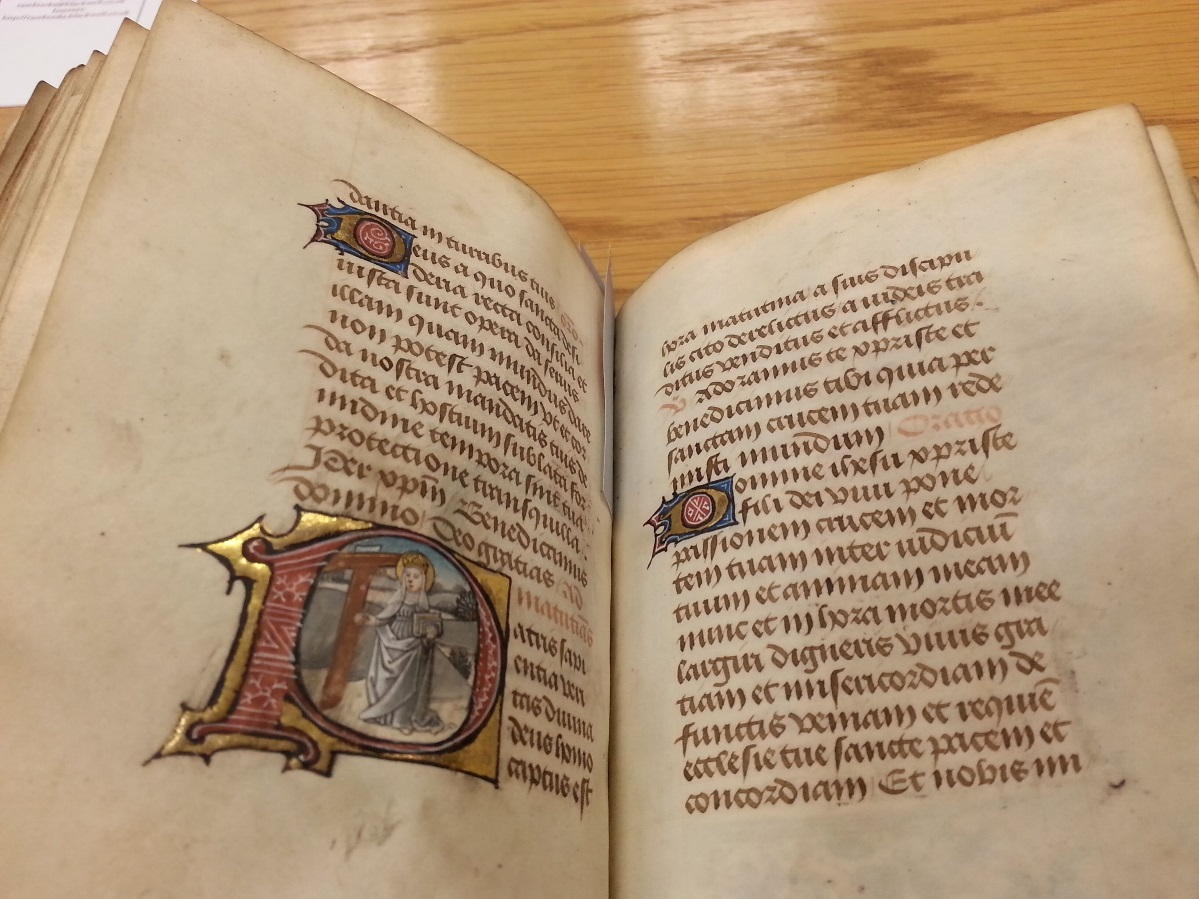 dantia in turribus tuis Oro
Deus a quo sancta desi
deria recta consilia et
iusta sunt opera da seruis
illam quam mundus dare
non potest pacem vt et cor
da nostra mandatis tuis de
dita et hostium sublata for
midine tempora sint tua
protectione tranquilla
Per xpm̄ Benedicamus
domino Deo gratias Ad
matutinas
Patris sapi
entia veri
tas diuina
deus homo
captus est
hora matutina a suis discipu
lis cito derelictus a iudeis tra
ditus venditus et afflictus
V Adoramus te xpriste et
benedicimus tibi quia per
sanctam crucem tuam rede
misti mundum Oratio
Domine ihesu xpriste
fili dei viui pone
passionem crucem et mor
tem tuam inter iudiciū
tuum et animam meam
nunc et in hora mortis mee
largiri digneris viuis gra
tiam et misericordiam de
functis veniam et requiē
ecclesie tue sancte pacem et
concordiam Et nobis in